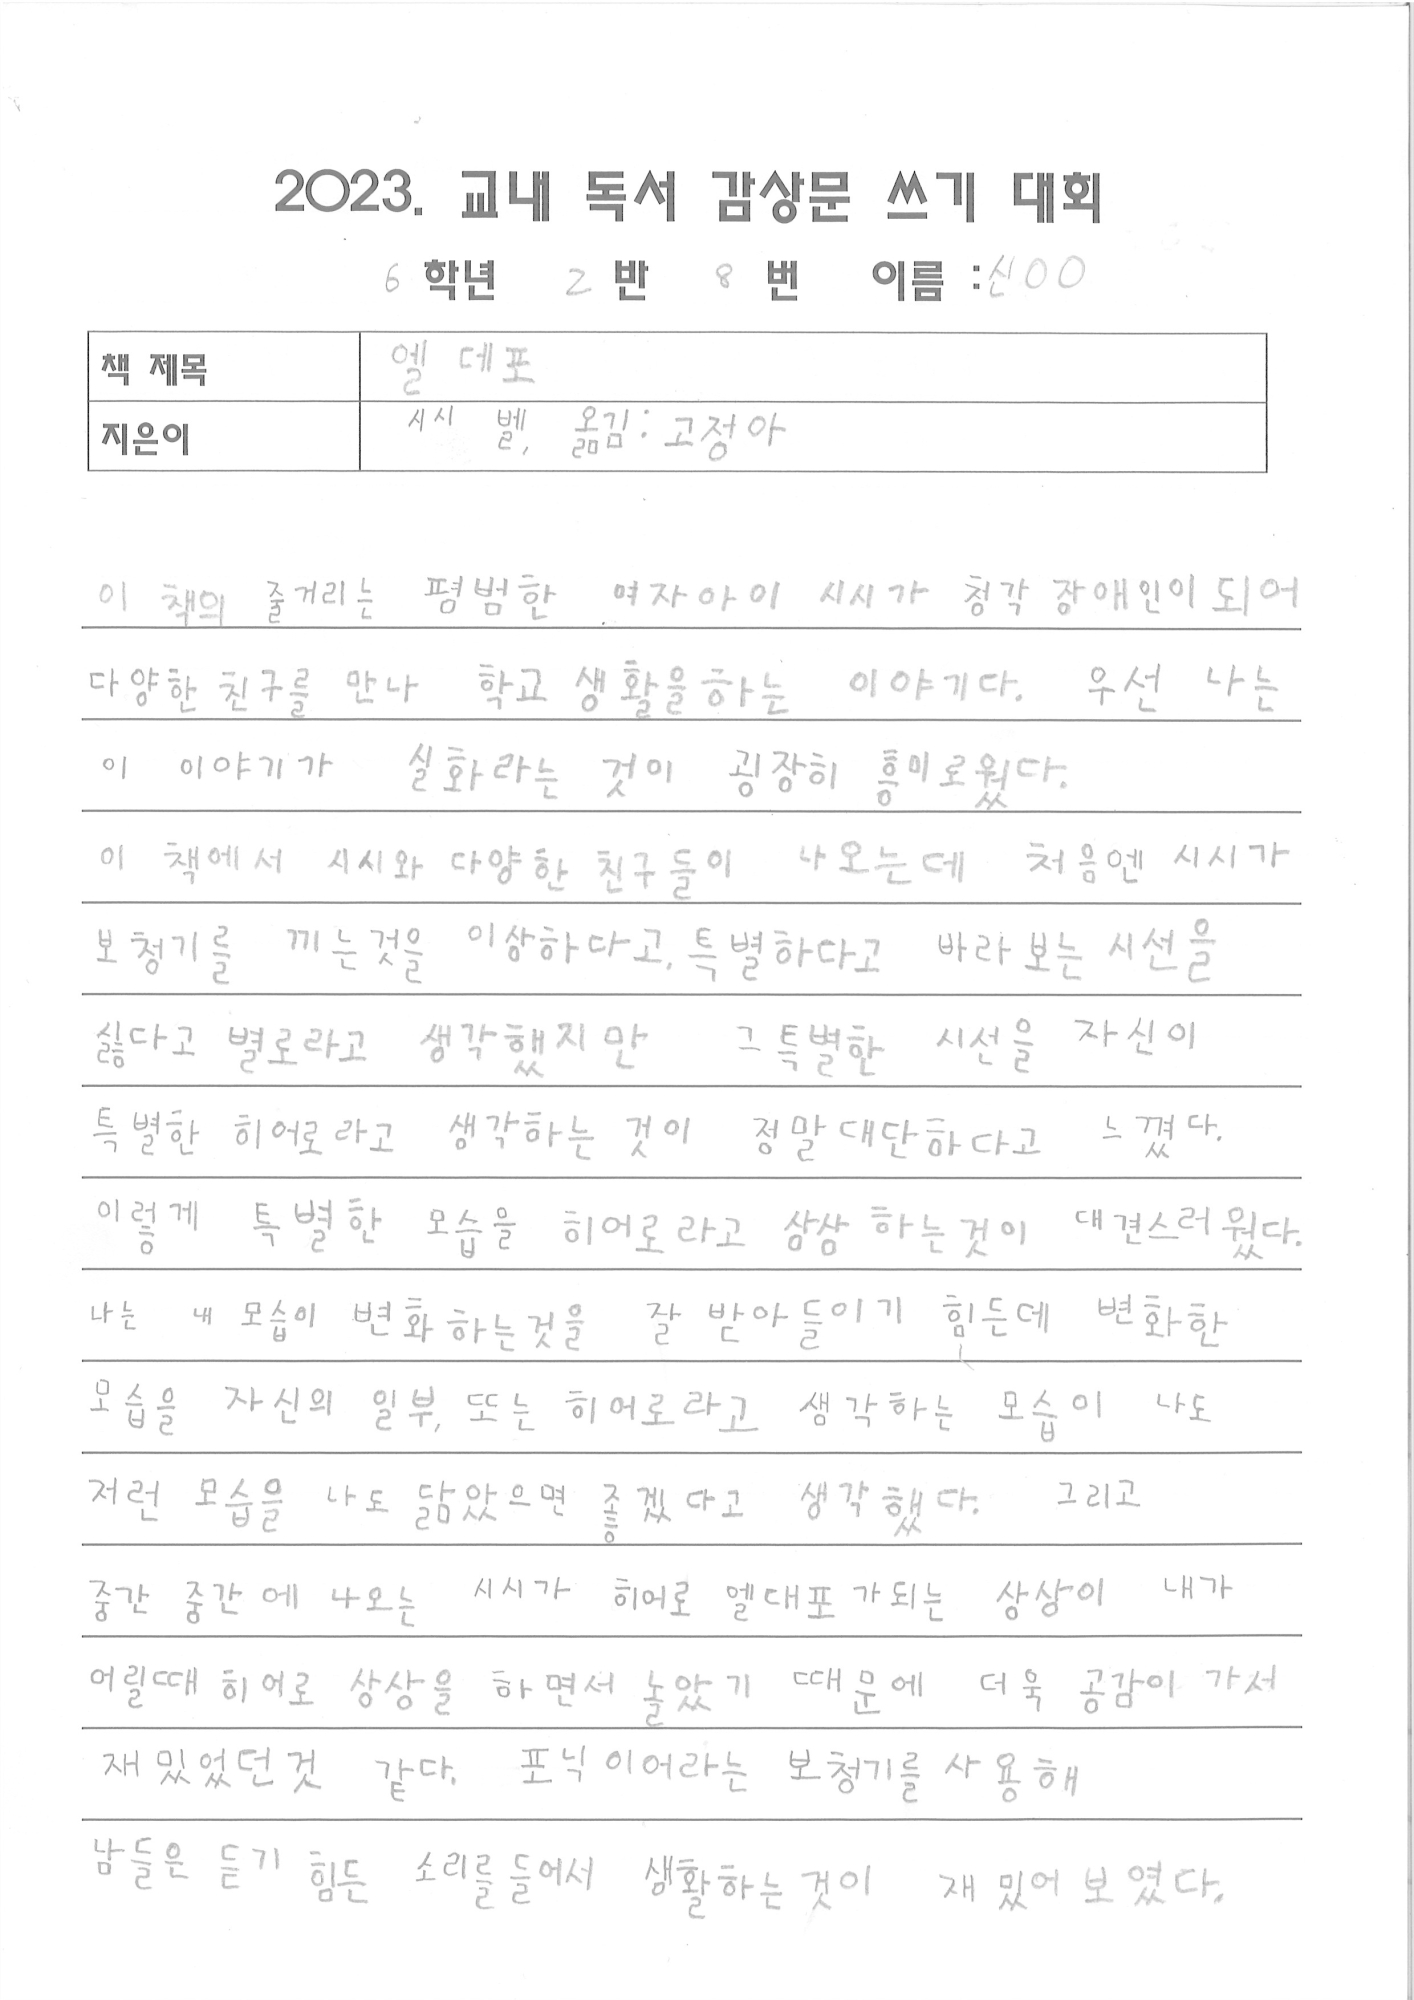 2023. 교내 독서 감상문 쓰기 대회
6 학년 2 반 8 번 이름 : 신○○
책 제목 엘 데포
지은이 시시 벨, 옮김: 고정아
이 책의 줄거리는 평범한 여자아이 시시가 청각 장애인이 되어
다양한 친구를 만나 학교 생활을하는 이야기다. 우선 나는
이 이야기가 실화라는 것이 굉장히 흥미로웠다.
이 책에서 시시와 다양한 친구들이 나오는데 처음엔 시시가
보청기를 끼는것을 이상하다고, 특별하다고 바라보는 시선을
싫다고 별로라고 생각했지만 그 특별한 시선을 자신이
특별한 히어로라고 생각하는 것이 정말대단하다고 느꼈다.
이렇게 특별한 모습을 히어로라고 상상하는것이 대견스러웠다.
나는 내 모습이 변화하는것을 잘 받아들이기 힘든데 변화한
모습을 자신의 일부, 또는 히어로라고 생각하는 모습이 나도
저런 모습을 나도 닮았으면 좋겠다고 생각했다. 그리고
중간 중간에 나오는 시시가 히어로 엘대포가되는 상상이 내가
어릴때 히어로 상상을 하면서 놀았기 때문에 더욱 공감이 가서
재밌었던것 같다. 포닉이어라는 보청기를 사용해
남들은 듣기 힘든 소리를들어서 생활하는것이 재밌어보였다.